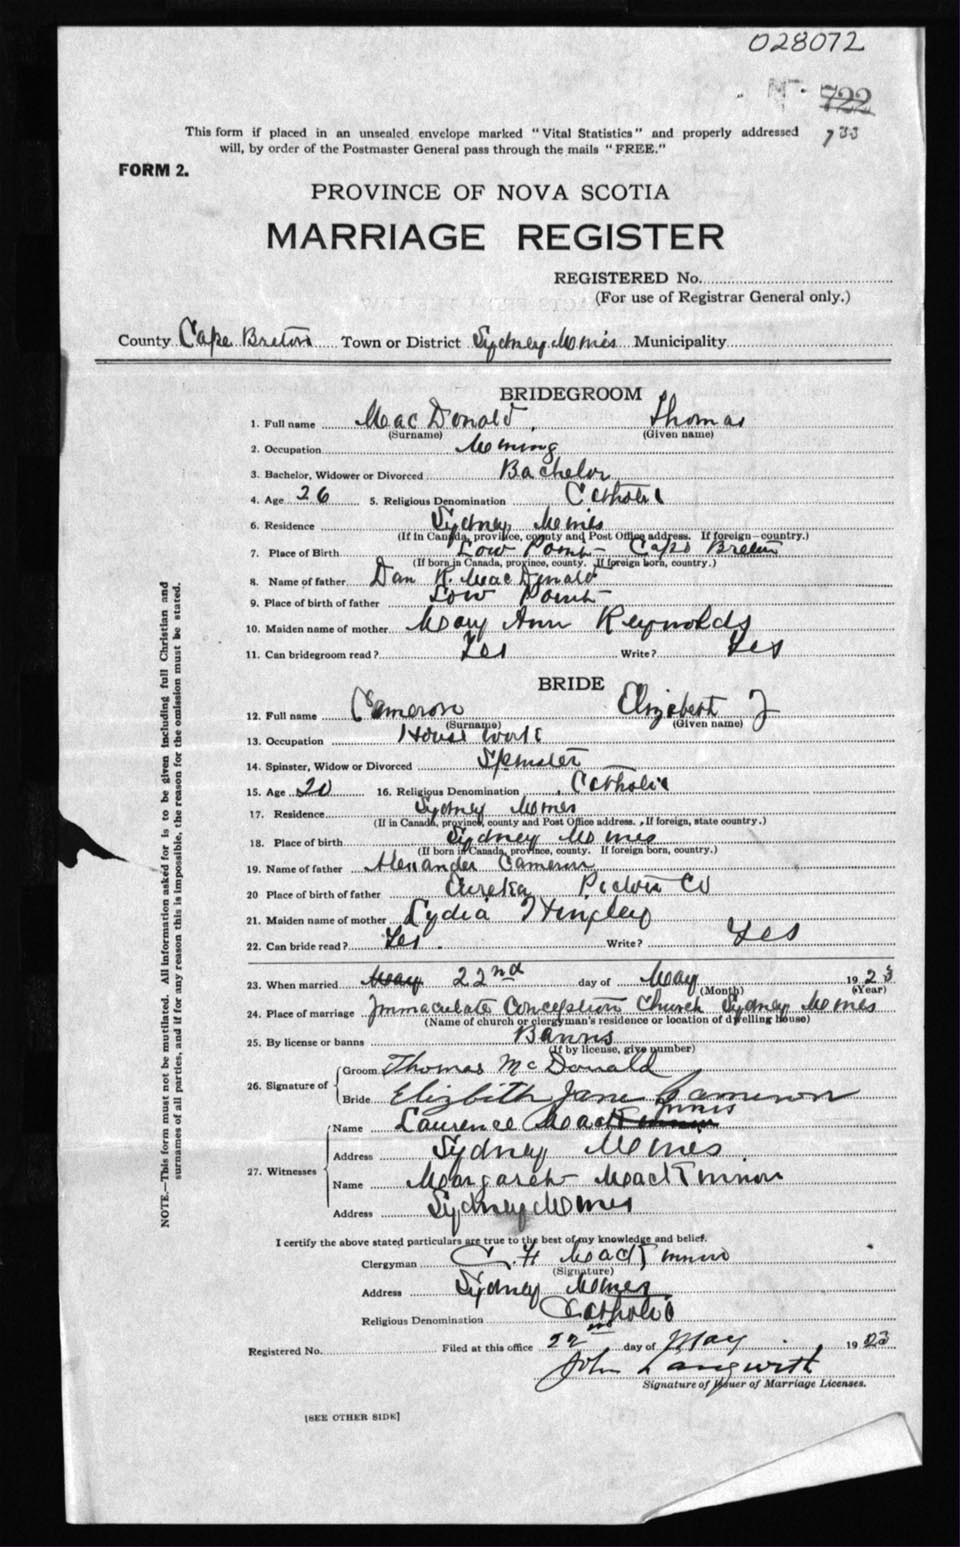 028072
No. 722
733
This form if placed in an unsealed envelope marked "Vital Statistics" and properly addressed
will, by order of the Postmaster General pass through the mails "FREE."
FORM 2.
PROVINCE OF NOVA SCOTIA
MARRIAGE REGISTER
REGISTERED No.
(For use of Registrar General only.)
County Cape Breton Town or District Sydney Mines Municipality
BRIDEGROOM
1. Full name MacDonald, Thomas
(Surname) (Given name)
2. Occupation Mining
3. Bachelor, Widower or Divorced Bachelor
4. Age 26 5. Religious Denomination Catholic
6. Residence Sydney Mines
(If in Canada, province, county and Post Office address. If foreign—country.)
7. Place of Birth Low Point Cape Breton
(If born in Canada, province, county. If foreign born, country.)
8. Name of father Dan R. MacDonald
9. Place of birth of father Low Point
10. Maiden name of mother Mary Ann Reynolds
11. Can bridegroom read? Yes Write? Yes
BRIDE
12. Full name Cameron Elizabeth J
(Surname) (Given name)
13. Occupation House Work
14. Spinster, Widow or Divorced Spinster
15. Age 20 16. Religious Denomination Catholic
17. Residence Sydney Mines
(If in Canada, province, county and Post Office address. If foreign, state country.)
18. Place of birth Sydney Mines
(If born in Canada, province, county. If foreign born, country.)
19. Name of father Alexander Cameron
20 Place of birth of father Eureka Pictou Co
21. Maiden name of mother Lydia Hingley
22. Can bride read? Yes. Write? Yes
23. When married May 22nd day of May 1923
(Month) (Year)
24. Place of marriage Immaculate Conception Church Sydney Mines
(Name of church or clergyman's residence or location of dwelling house)
25. By license or banns Banns
(If by license, give number)
26. Signature of Groom Thomas McDonald
Bride Elizbith Jane Cameron
27. Witnesses Name Laurence MacKinnon Innis
Address Sydney Mines.
Name Margaret MacKinnon
Address Sydney Mines
I certify the above stated particulars are true to the best of my knowledge and belief.
Clergyman C. F. MacKinnon
(Signature)
Address Sydney Mines
Religious Denomination Catholic
Registered No. Filed at this office 22nd day of May 1923
John Langwith
Signature of Issuer of Marriage Licenses.
[SEE OTHER SIDE]
NOTE.—This form must not be mutilated. All information asked for is to be given including full Christian and
surnames of all parties, and if for any reason this is impossible, the reason for the omission must be stated.